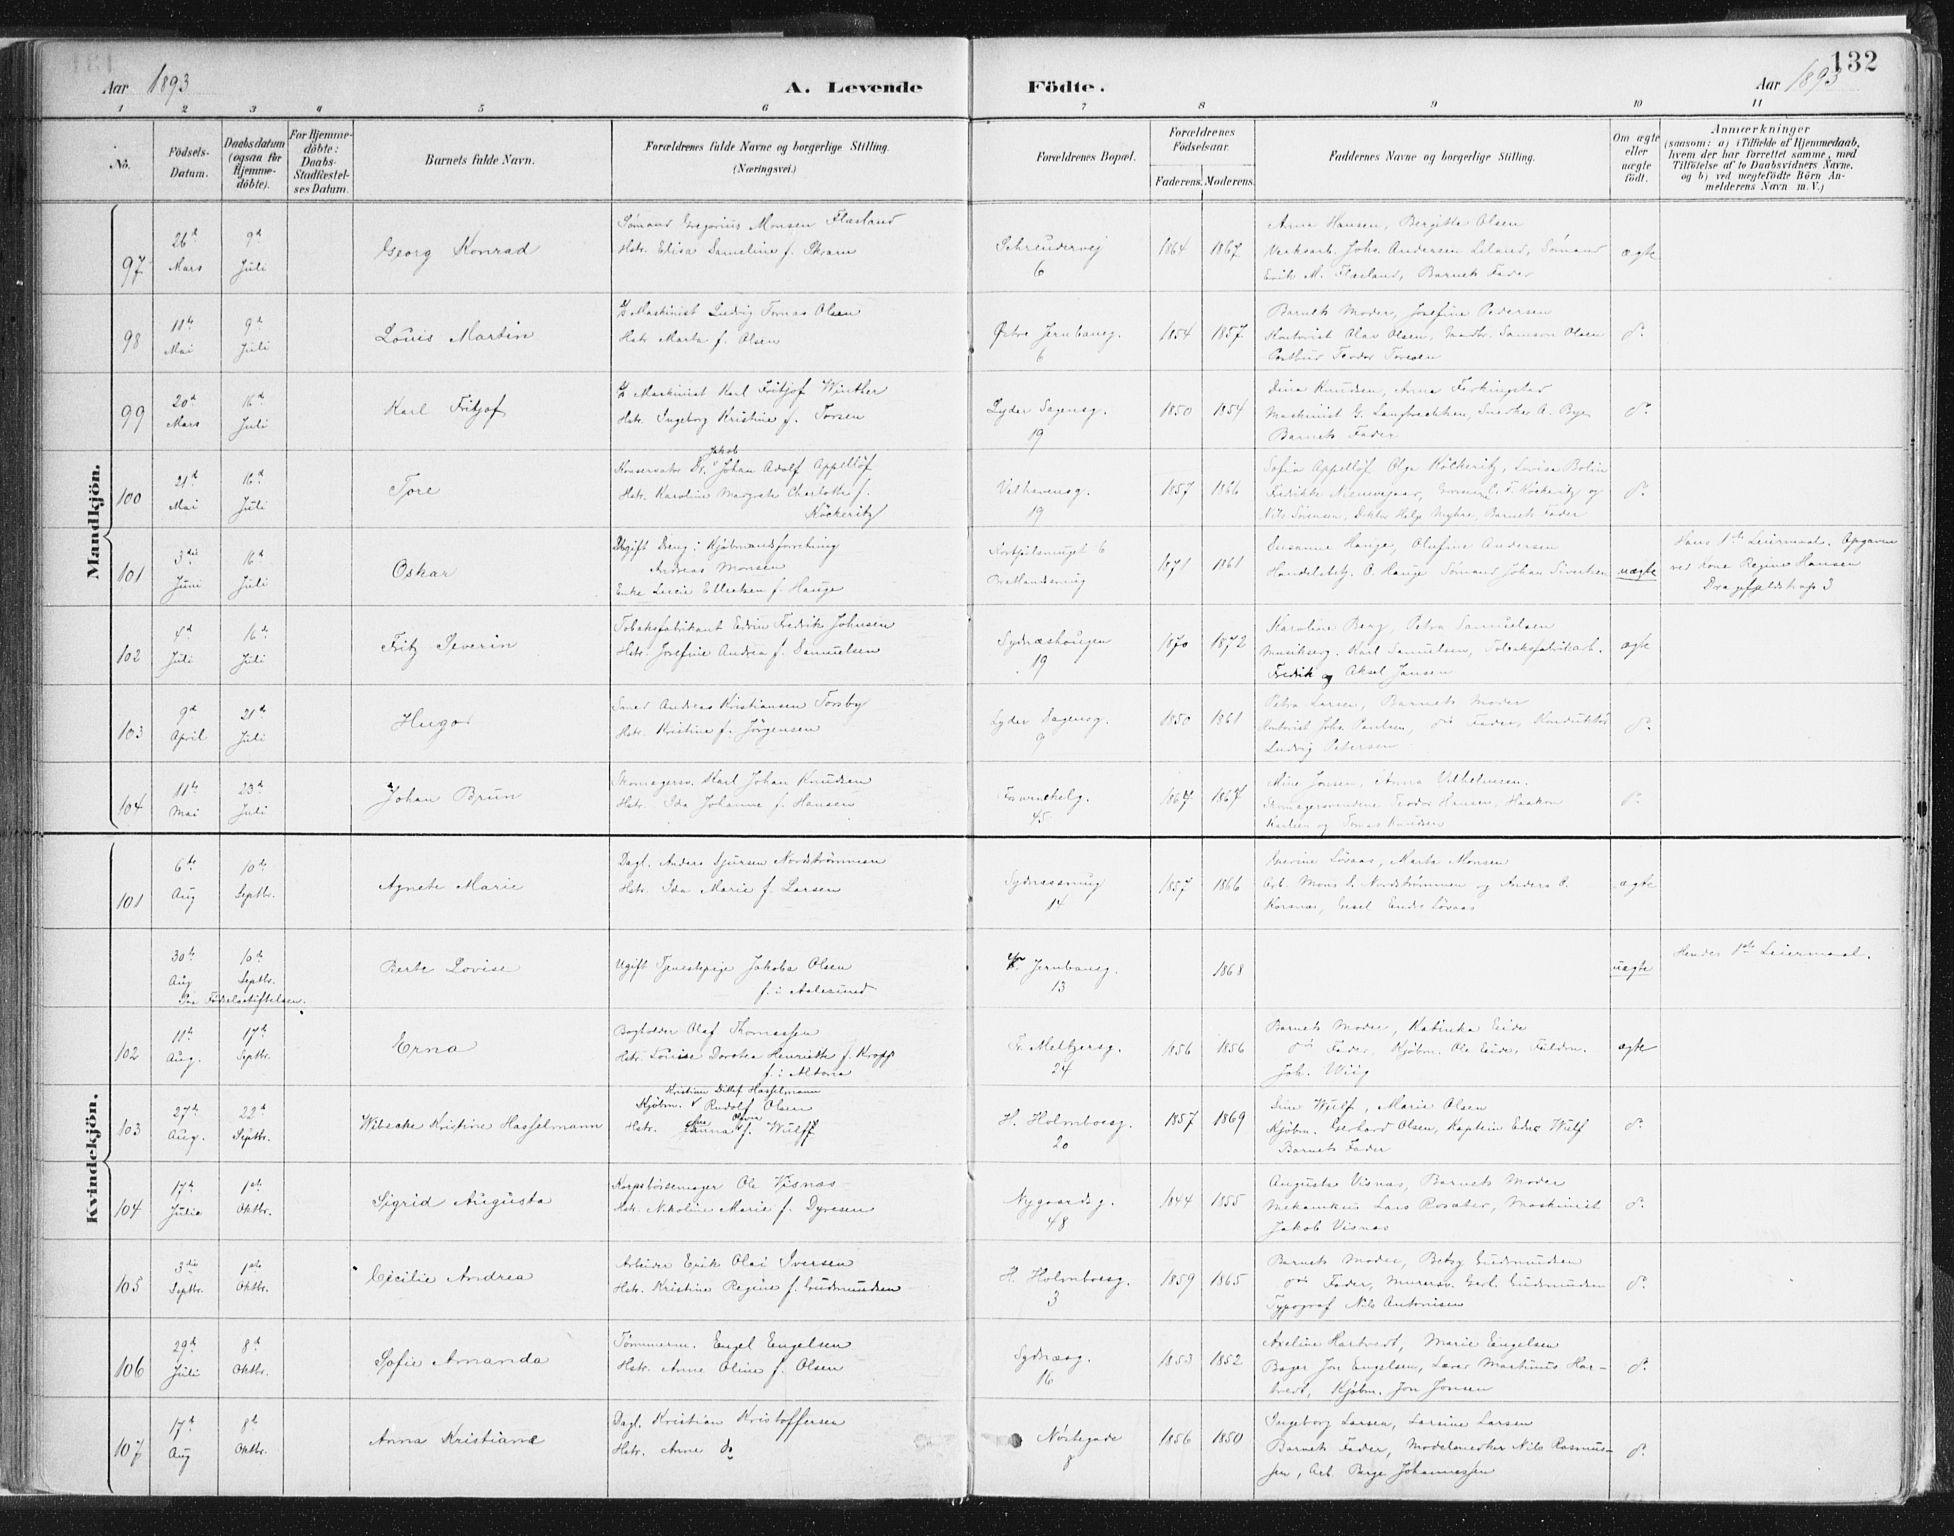 132
Aar 1893
A. Levende
Födte.
Aar 1893
1 2 3 4 5 6 7 8 9 10 11
No.
Födsels-
Datum.
Daabsdatum
(ogsaa for
Hjemme-
döbte).
For Hjemme-
döbte:
Daabs-
Stadfæstel-
ses Datum.
Barnets fulde Navn.
Forældrenes fulde Navne og borgerlige Stilling.
(Næringsvei.)
Forældrenes Bopæl.
Forældrenes
Födselsaar.
Faderens. Moderens.
Faddernes Navne og borgerlige Stilling.
Om ægte
eller
uægte
födt.
Anmærkninger
(saasom: a) i Tilfælde af Hjemmedaab,
hvem der har forrettet samme, med
Tilföielse af to Daabsvidners Navne,
og b) ved uægtefödte Börn An-
melderens Navn m. V.)
Mandkjön.
97
26d Mars
9d Juli
Georg Konrad
Sömand Gregorius Monsen Flæsland
Hstr. Elisa Sameline f. Skram
Schreudervej
6
1864 1867
Anna Hansen, Bergitte Olsen
Joha. Andersen Leland, Sömand
Erik M. Flæsland, Barnets Fader
ægte
98
Mai
9d Juli
Louis Martin
Maskinist Ludvig Tomas Olsen
Hstr. Marta f. Olsen
Östre Jernbaneg.
6
1854 1857
Barnets Moder, Josefine Pedersen
Kontorist Olav Olsen, Samson Olsen
Postbud Teodor Toresen
do.
99
20d Mars
16d Juli
Karl Fritjof
Maskinist Karl Fritjof Winther
Hstr. Ingeborg Kristine f. Torsen
Lyder Sagensg.
19
1850 1854
Dina Knudsen, Anna Ferkingstad
Maskinist G. Langbakken, Snedker A. Bye
Barnets Fader
do.
100
21d Mai
16d Juli
Tore
Konservator Dr. Jakob Johan Adolf Appellöf
Hstr. Karoline Margrete Charlotte f.
Köckeritz
Velhavensg.
19
1857 1866
Sofia Appellöf Olga Köckeritz, Lovisa Bolin
Fredrikke Nieuwejaar, C. F. Köckeritz og
Nils Sörensen, Doktor Helge Myhre, Barnets Fader
do.
101
3die Juni
16d Juli
Oskar
Ugift Dreng i Kjöbmandsforretning
Andreas Monsen
Enke Lucie Ellertsen f. Hauge
Kortpilsmuget 6
1871 1861
Susanne Hauge, Olufine Andersen
Handelsbetj. O. Hauge Sömand Johan Sivertsen
uægte
Hans 1ste Leiermaal. Opgaven
ved Kone Regine Hansen
3
102
4d Juli
16de Juli
Fritz Severin
Tobaksfabrikant Edvin Fredrik Johnsen
Hstr. Josefine Andrea f. Samuelsen
Sydneshougen
19
1870 1872
Karoline Berg, Petra Samuelsen
Musikserg. Karl Samuelsen, Tobaksfabrikarb.
Fredrik og Aksel Jansen
ægte
103
9d April
21d Juli
Hugo
Smed Andreas Kristiansen Torsby
Hstr. Kristine f. Jörgensen
Lyder Sagensg.
9
1850 1861
Petra Larsen, Barnets Moder
Kontorist Joha. Paulsen, do Fader, Konduktör
Ludvig Petersen
do.
104
11te Mai
23d Juli
Johan Brun
Skomagersv. Karl Johan Knudsen
Hstr. Ida Johanne f. Hansen
Fosswinckelg.
45
1867 1867
Mine Jonsen, Anna Vilhelmsen.
Skomagersvendene Teodor Hansen, Haakon
Karlsen og Tomas Knudsen
do.
Kvindekjön.
101
6te Aug
10de Septbr.
Agnete Marie
Dagl. Anders Sjursen Nordströmmen
Hstr. Ida Marie f. Larsen
Sydnessmug
14
1857 1866
Severine Lövaas, Marta Monsen
Arb. Mons S. Nordströmmen og Anders O.
Korsnes, Gesel Endre Lövaas
ægte
30te Aug
10de Septbr.
Paa Födselsstiftelsen.
Berte Lovise
Ugift Tjenestepige Jakoba Olsen
f. i Aalesund
Jernbaneg.
13
1868
uægte
Hendes 1ste Leiermaal.
102
11te Aug.
17de Septbr.
Erna
Bogholder Olaf Thomassen
Hstr. Louise Dorotea Henriette f. Kropp
f. i Altona
Fr. Meltzersg.
24
1856 1856
Barnets Moder, Katinka Eide
do Fader, Kjöbm. Ole Eide, Fuldm.
Joh. Wiig
ægte
103
27de Aug.
22d Septbr.
Wibecke Kristine Hasselmann
Kristian Ditlef Hasselmann
Kjöbm. Rudolf Olsen
Hstr. Olava f. Wulff
H. Holmboesg.
20
1857 1869
Line Wulf, Marie Olsen
Kjöbm. Gerhard Olsen, Kaptein Eder Wulf
Barnets Fader
do.
104
17d Julie
1ste Oktbr.
Sigrid Augusta
Korpsbössemager Ole Visnes
Hstr. Nikoline Marie f. Dyresen
Nygaardsg.
48
1844 1855
Augusta Visnes, Barnets Moder
Mekanikus Lars Rosæter, Maskinist
Jakob Visnes
do.
105
3die Septbr.
1ste Oktbr.
Cecilie Andrea
Arbeider Erik Olai Iversen
Hstr. Kristine Regine f. Gudmundsen
H. Holmboesg.
3
1859 1865
Barnets Moder, Betsy Gudmundsen
do Fader, Murersv. Gerh. Gudmundsen
Typograf Nils Antonisen
do.
106
29d Juli
8d Oktbr.
Sofie Amanda
Tömmerm. Engel Engelsen
Hstr. Anne Oline f. Olsen
Sydnesg.
16
1853 1852
Axeline Hartvedt, Marie Engelsen
Bager Jon Engelsen, Lærer Martinus Har-
tvedt, Kjöbm. Jon Jonsen
do.
107
17d Aug
8de Oktbr.
Anna Kristiane
Dagl. Kristian Kristoffersen
Hstr. Anne do
Nöstegade
8
1856 1850
Ingeborg Larsen, Larsine Larsen
Barnets Fader, Modelsnedker Nils Rasmus-
sen, Arb. Berge Johannessen
do.